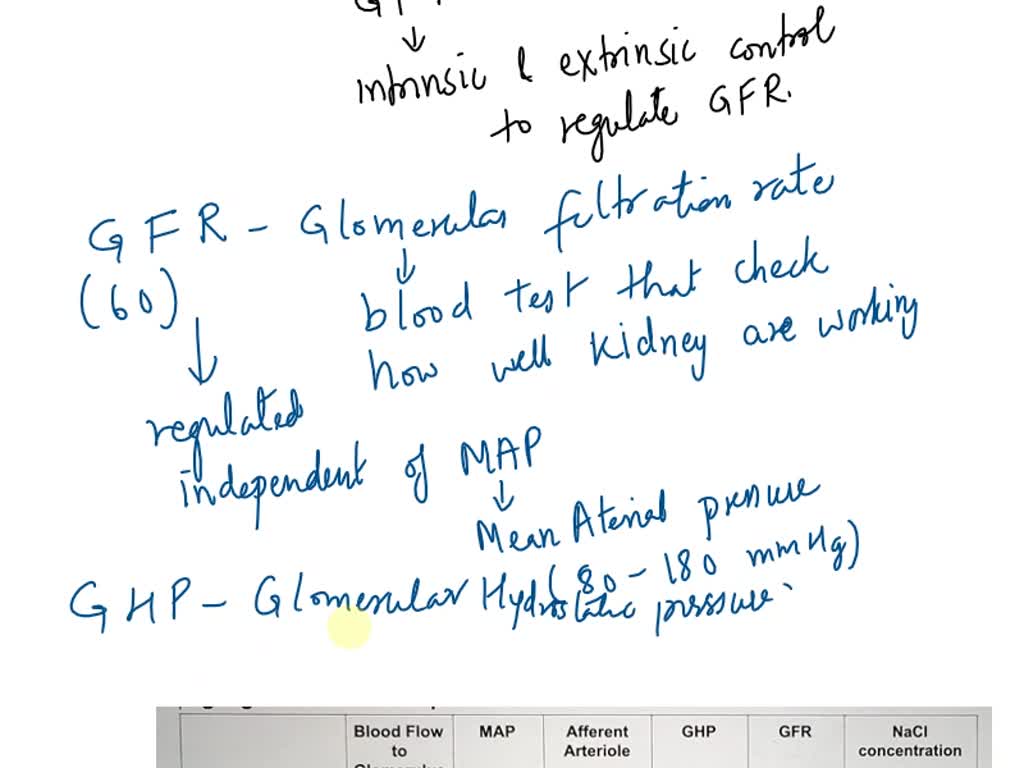 intrinsic & extrinsic control
to regulate GFR.
GFR - Glomerular filtration rate
(60)
blood test that check
how well kidney are working
regulated
independent of MAP
Mean Aterial pressure
(80 - 180 mmHg)
GHP - Glomerular Hydrostatic pressure
Blood Flow to MAP Afferent Arteriole GHP GFR NaCl concentration